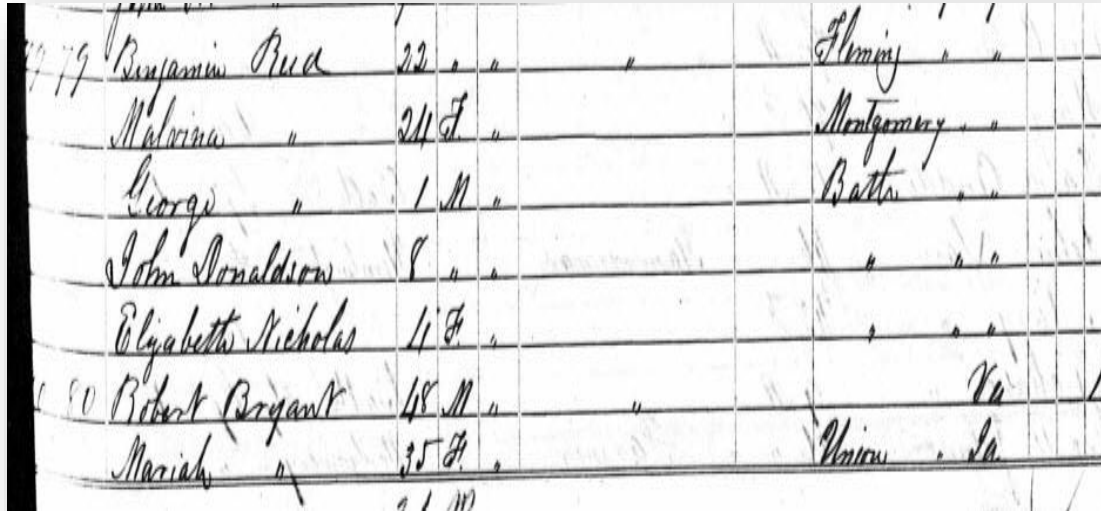 79 Benjamin Reed 22 " " " Fleming " "
Malvina " 24 F. " Montgomery " "
George " 1 M " Bath " "
John Donaldson 8 " " " " "
Elizabeth Nicholas 4 F. " " " "
80 Robert Bryant 48 M " " Va
Mariah " 35 F. " Union " Ia.